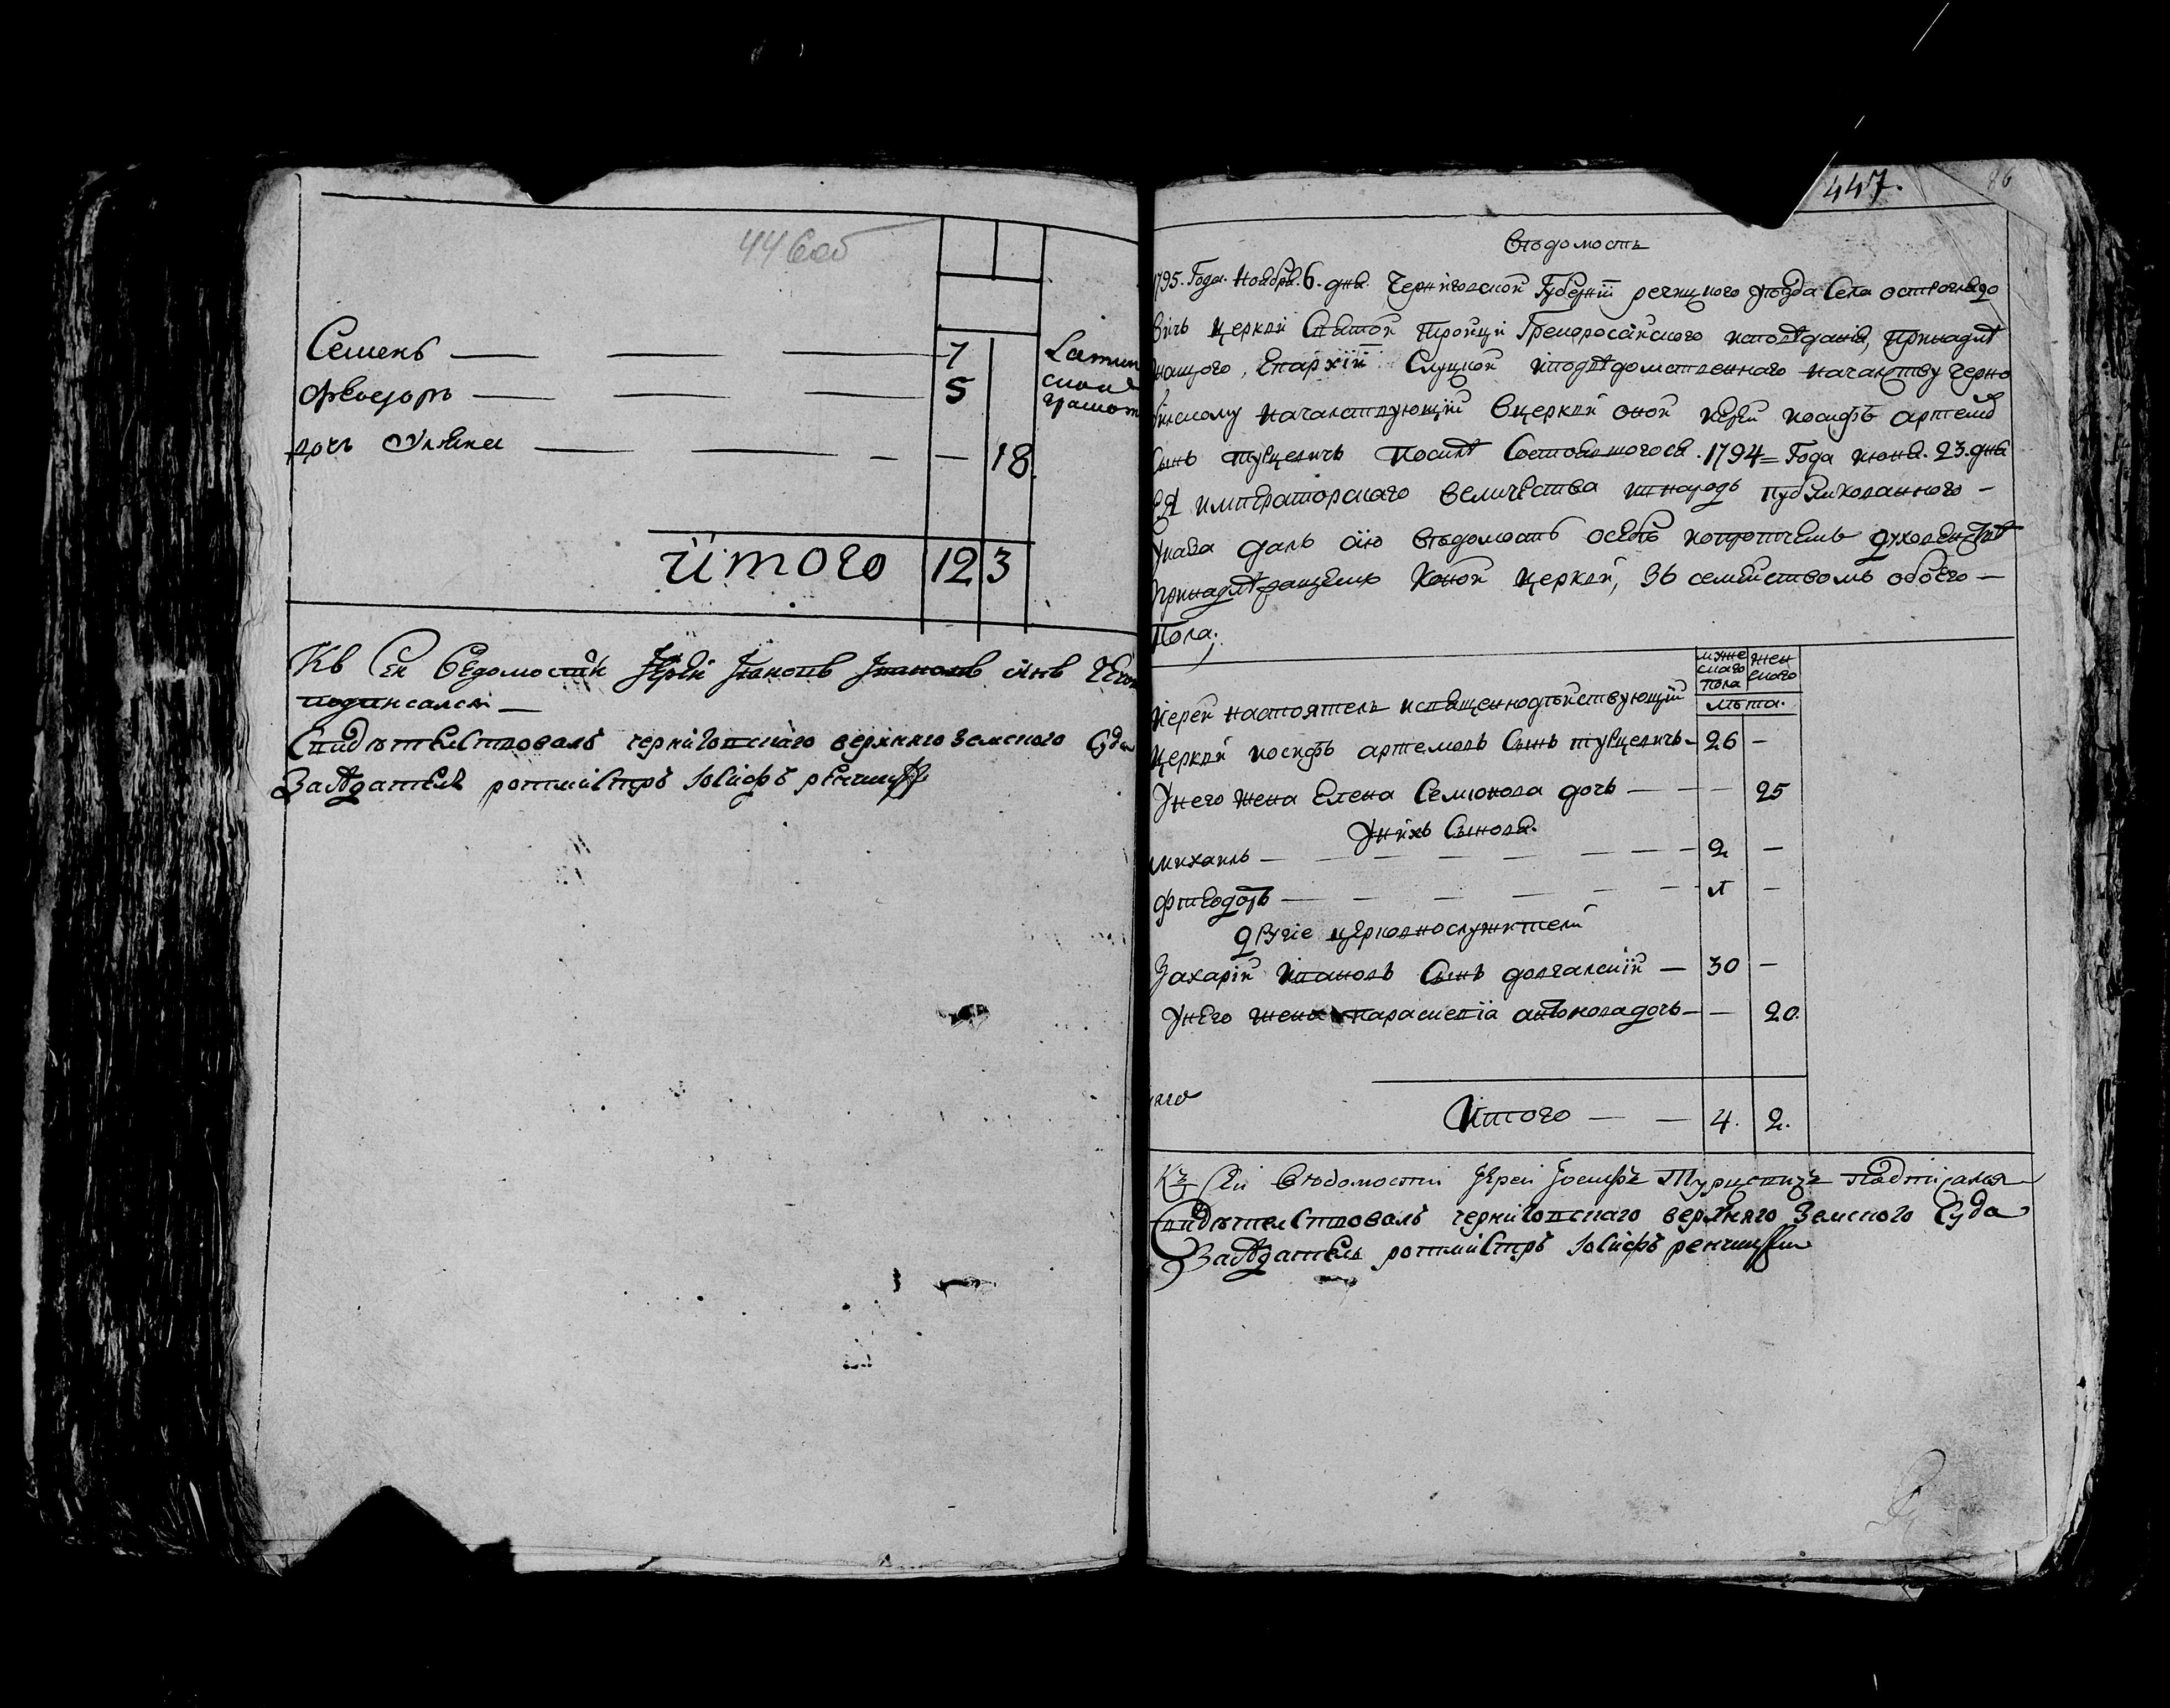 446об
Семенъ — — — 7
Ѳеодоръ — — — 5
дочь Улияна — — — — 18
Латин
ской
грамот
итого 12 3
Къ сей ведомости Іерей Іоаннъ Іоанновъ синъ
подписался —
Свидѣтелствовалъ черниговскаго верхняго земского суда
Засѣдатель ротмистръ Іосифъ
447.
86
Вѣдомость
1795. Года. Ноября. 6. дня. Черниговской Губерніи речицкого уезда Села остроглядо
вичъ церкви Святой Тройци Грекоросійского исповѣданія, принадлѣ
жащого, Епархіи Слуцкой и подвѣдомственного началству черно
билскому началствующій вцеркви оной иерей иосифъ артемо
сынъ турцевичъ Посилѣ Состоявшогося. 1794 = Года июня. 23. дня
ЕЯ императорскаго величества и внародъ публикованного —
указа далъ сию вѣдомость осебѣ ипротчемъ духовенствѣ
принадлѣжащемъ коной церкви, зъ семействомъ обоего —
Пола;
муже
скаго
пола
жен
скаго
лѣта.
Иерей настоятель исвященнодѣйствующій
церкви иосифъ артемовъ Сынъ турцевичъ — 26 —
унего жена Елена Семионова дочь — — — 25
унихъ Синовя.
михаилъ — — — — — — 2 —
Ѳтеодоръ — — — — — 1 —
другіе церковнослужители
Захарій ивановъ Сынъ долгалскій — 30 —
унего жена параскевія антонова дочь — — 20.
яго
Итого — — 4. 2.
Къ сей вѣдомости Іерей Іосифъ Турцевичъ подписался
Свидѣтелствовалъ черниговскаго верхняго земского суда
Засѣдатель ротмистръ Іосифъ